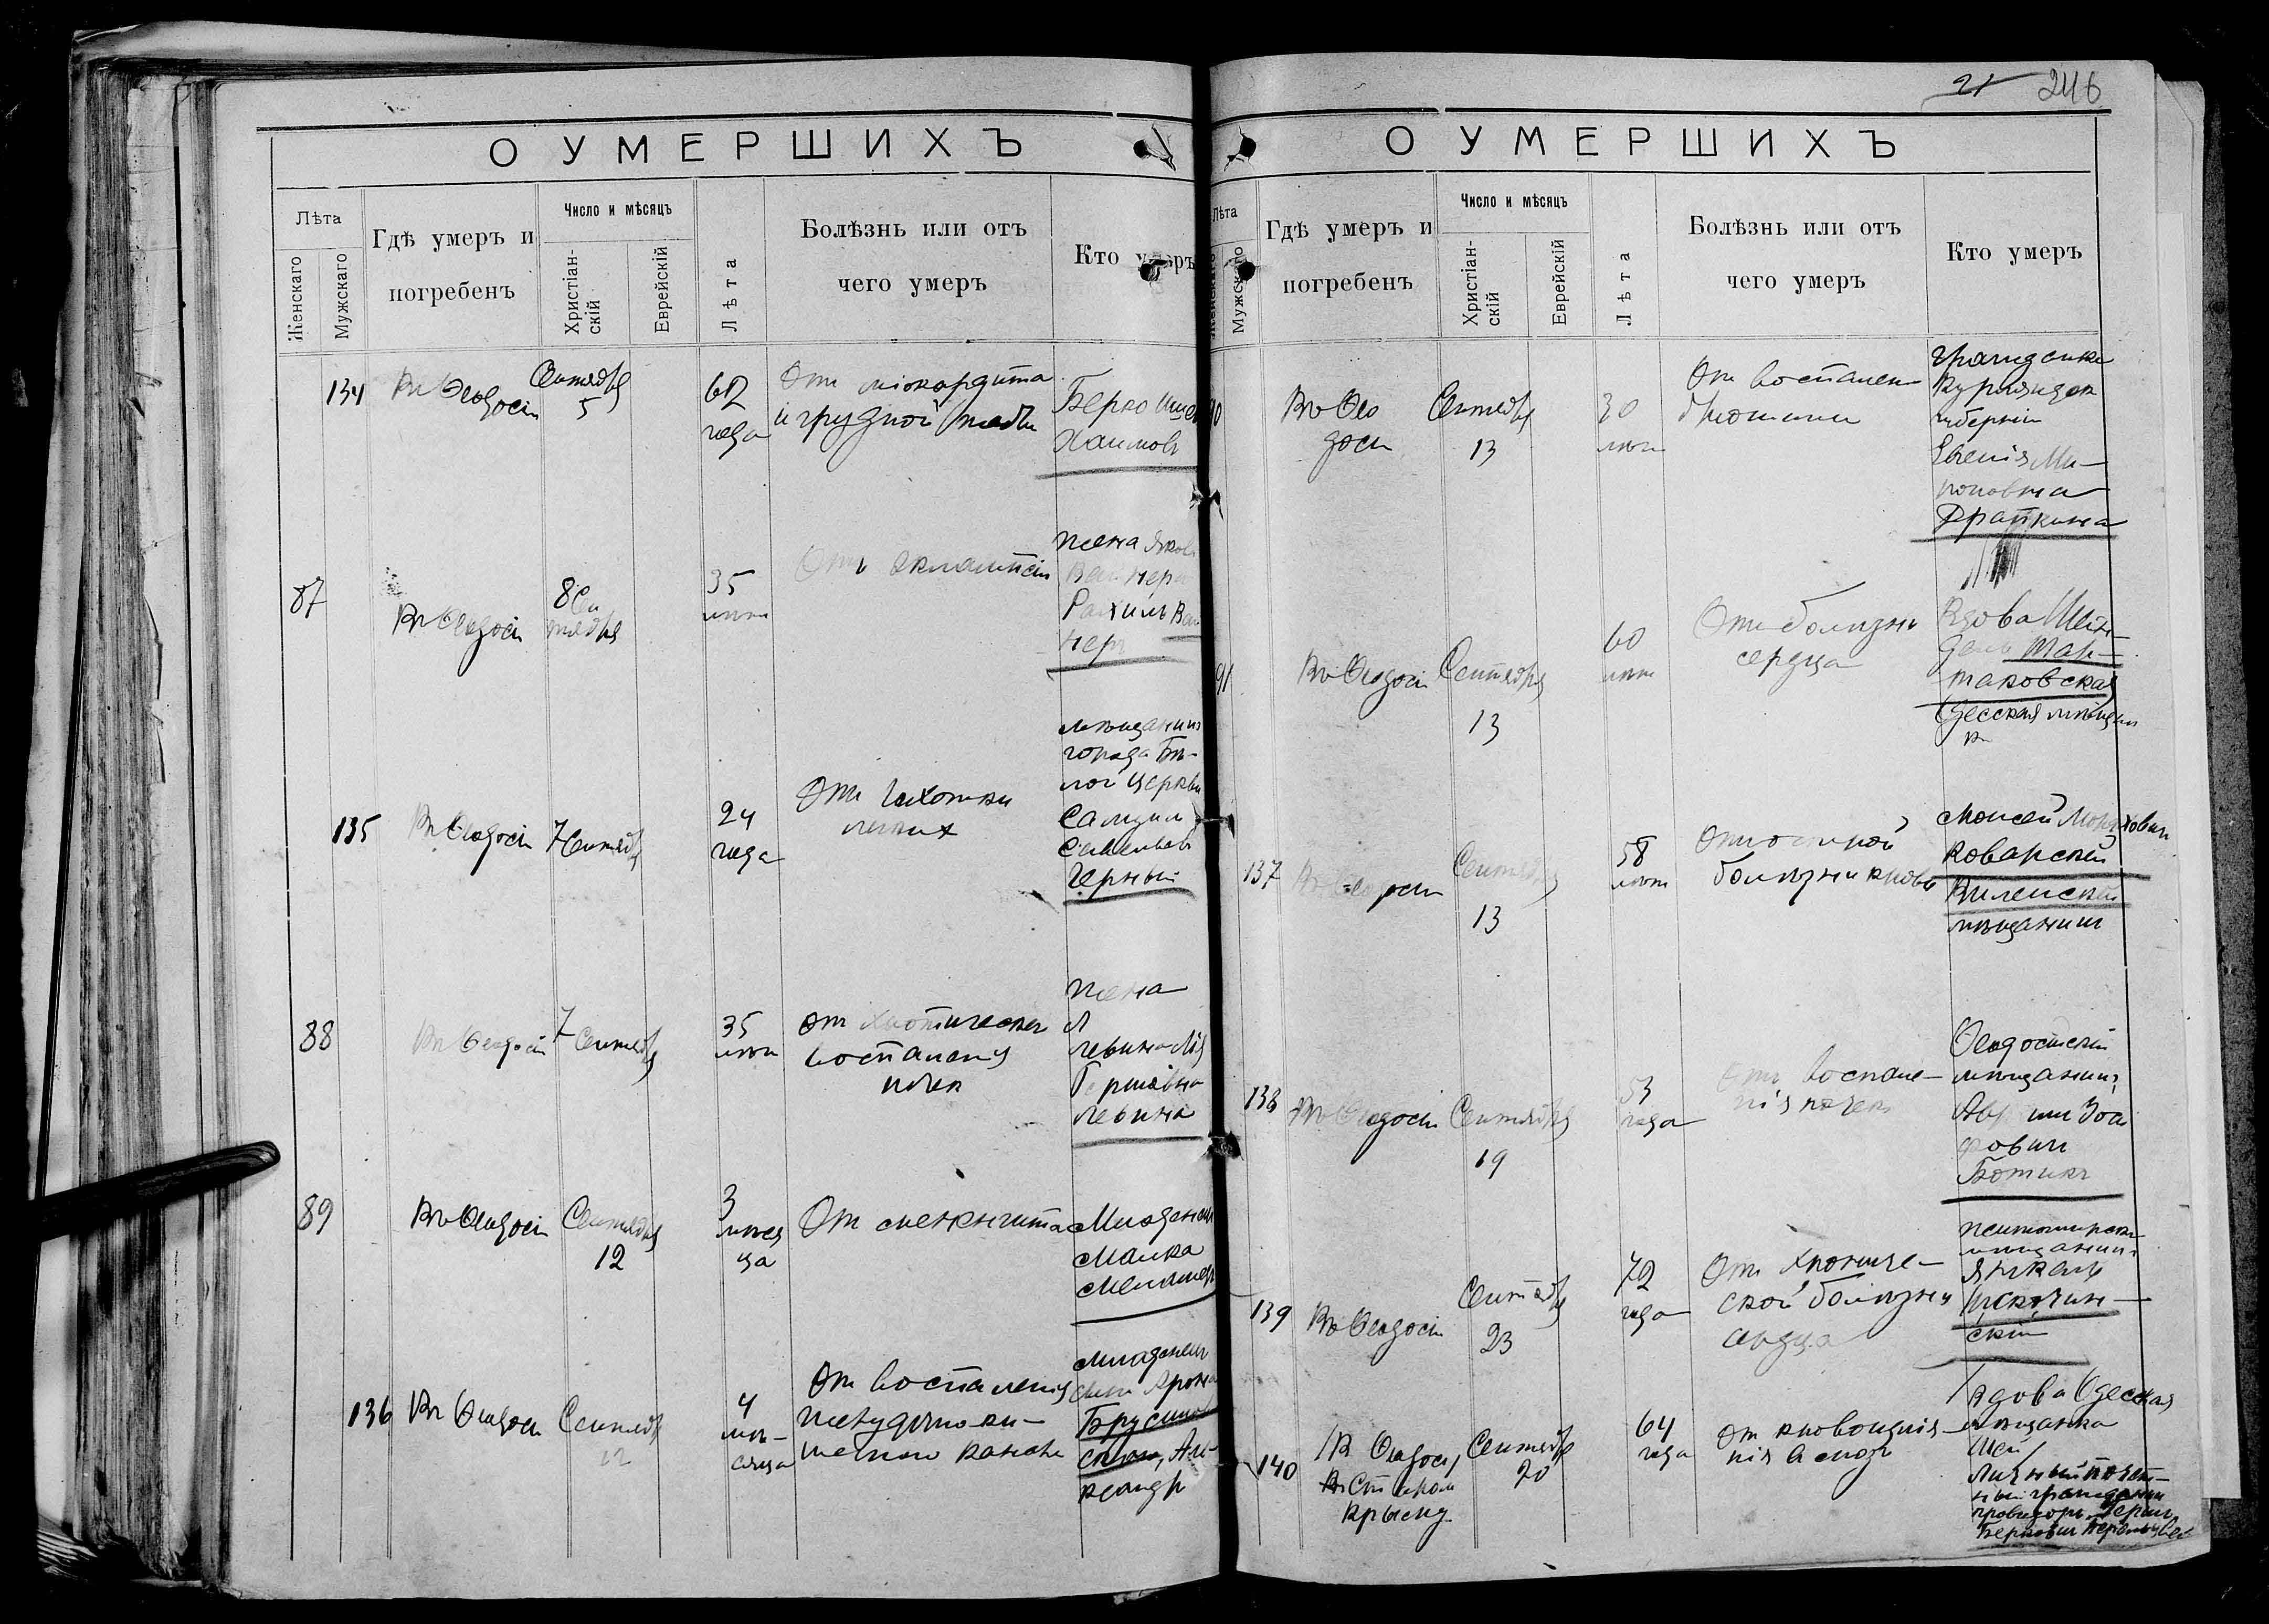 О УМЕРШИХЪ
Лѣта
Женскаго
Мужскаго
Гдѣ умеръ и
погребенъ
Число и мѣсяцъ
Христіан-
скій
Еврейскій
Лѣта
Болѣзнь или отъ
чего умеръ
Кто умеръ
134
Въ Ѳеодосіи
Сентября
5
62
года
Отъ міокардита
и грудной жабы
Берко
Хаимовъ
87
Въ Ѳеодосіи
8 Сен
тября
35
лѣтъ
Отъ эклампсіи
жена Якова
Вайнера
Рахиль Вай
неръ
135
Въ Ѳеодосіи
7 Сентября
24
года
Отъ чахотки
легких
мѣщанинъ
города Бѣ-
лой Церкви
Самуил
Черный
88
Въ Ѳеодосіи
7 Сентября
35
лѣтъ
От
воспаленія
почек
жена
Левина Лія
Гершовна
Левина
89
Въ Ѳеодосіи
Сентября
12
3
мѣся
ца
От менингита
Младенец
Малка
136
Въ Ѳеодосіи
Сентября
12
4
мѣ-
сяца
От воспаленія
желудочно ки-
шечного канала
младенец
сын Арона
Александр
21 246
О УМЕРШИХЪ
Лѣта
Женскаго
Мужскаго
Гдѣ умеръ и
погребенъ
Число и мѣсяцъ
Христіан-
скій
Еврейскій
Лѣта
Болѣзнь или отъ
чего умеръ
Кто умеръ
90
Въ Ѳео
досіи
Сентября
13
30
лѣтъ
От воспален
брюшины
гражданка
Курляндск
губерніи
Евгенія Ми-
роновна
Драпкина
91
Въ Ѳеодосіи
Сентября
13
60
лѣтъ
Отъ болѣзни
сердца
Вдова Шейн-
дель
таковская
Одесская мѣщан
к
137
Въ Ѳеодосіи
Сентября
13
58
лѣтъ
От острой
болѣзни крови
Моисей Мордхович
Коварский
Виленский
мѣщанин
138
Въ Ѳеодосіи
Сентября
19
53
года
Отъ воспале-
нія почекъ
Ѳеодосійскій
мѣщанинъ
фович
Ботикъ
139
Въ Ѳеодосіи
Сентября
23
72
года
От хрониче-
ской болѣзни
сердца
житомирскій
мѣщанинъ
Янкель
скій
140
В Ѳеодосіи,
в Старом
Крыму
Сентября
20
64
года
От кровоизлія-
нія в мозг
Вдова Одесская
мѣщанка
Шей
Личный почет-
ный гражданин
провизоръ Герш
Беркович